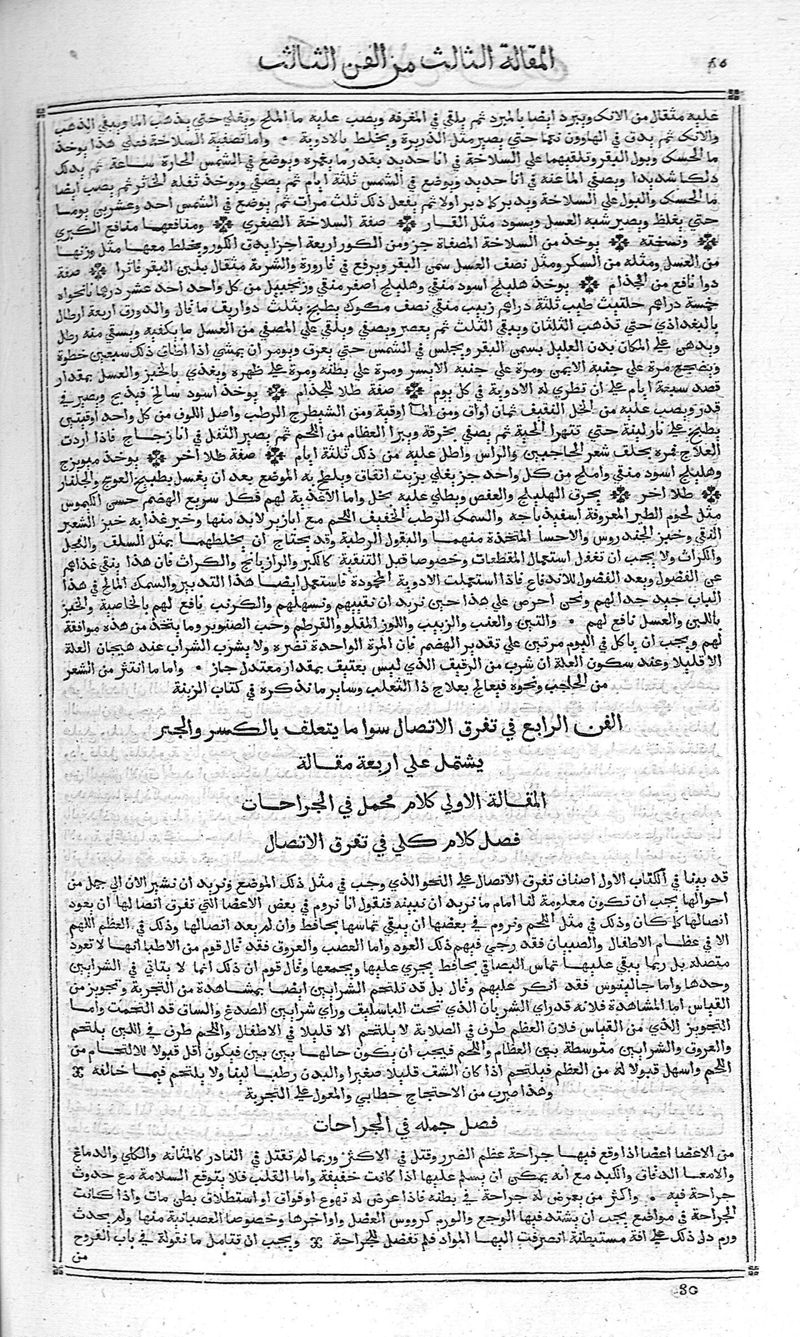 ٨٥ المقالة الثالث من الفن الثالث
عليه مثقال من الانك ويبرد ايضا بالمبرد ثم يلقي في المغرفة ويصب عليه ما الملح ويغلي حتي يذهب الما ويبقي الذهب
والانك ثم يدق في الهاوون نعما حتي يصير مثل الذريرة ويخلط بالادوية • واما تصفية السلاخة فعلي هذا يوخذ
ما الحسك وبول البقر وتلقيهما علي السلاخة في انا حديد بقدر ما يغمره ويوضع في الشمس الحارة ساعة ثم يدلك
دلكا شديدا ويصفي الما عنه في انا حديد ويوضع في الشمس ثلثة ايام ثم يصفي ويوخذ ثفله الخاثر ثم يصب ايضا
ما الحسك والبول علي السلاخة ويدبر كما دبر اولا ثم يفعل ذلك ثلث مرات ثم يوضع في الشمس احد وعشرين يوما
حتي يغلظ ويصير شبه العسل ويسود مثل القار ❊ صفة السلاخة الصغري ❊ ومنافعها منافع الكبري
❊ ونسخته ❊ يوخذ من السلاخة المصفاة جز ومن الكور اربعة اجزا يدق الكور ويخلط معها مثل وزنها
من العسل ومثله من السكر ومثل نصف العسل سمن البقر ويرفع في قارورة والشربة مثقال بلبن البقر فاترا ❊ صفة
دوا نافع من الجذام ❊ يوخذ هليلج اسود منقي وهليلج اصفر منقي وزنجبيل من كل واحد احد عشر درهما نانخواه
خمسة دراهم حلتيت طيب ثلثة دراهم زبيب منقي نصف مكوك يطبخ بثلث دواريف ما قال والدورق اربعة ارطال
بالبغداذي حتي تذهب الثلثان ويبقي الثلث ثم يعصر ويصفي ويلقي علي المصفي من العسل ما يكفيه ويسقي منه رطل
ويدهن علي المكان بدن العليل بسمن البقر ويجلس في الشمس حتي يعرق ويومر ان يمشي اذا اطاق ذلك سبعين خطوة
ويضجع مرة علي جنبه الايمن ومرة علي جنبه الايسر ومرة علي بطنه ومرة علي ظهره ويغذي بالخبز والعسل بمقدار
قصد سبعة ايام علي ان تطري له الادوية في كل يوم ❊ صفة طلا للجذام ❊ يوخذ اسود سالخ فيذبح ويصير في
قدر ويصب عليه من الخل الثقيف ثمان اواق ومن الما اوقية ومن الشيطرج الرطب واصل اللون من كل واحد اوقيتين
يطبخ علي نار لينة حتي تتهرا الحية ثم يصفي بخرقة ويبرا العظام من اللحم ثم يصير الثفل في انا زجاج فاذا اردت
العلاج فمره بحلف شعر الحاجبين والراس واطل عليه من ذلك ثلثة ايام ❊ صفة طلا اخر ❊ يوخذ ميويزج
وهليلج اسود منقي واملج من كل واحد جز يغلي بزيت انفاق ويلطخ به الموضع بعد ان يغسل بطبيخ العوسج والجلنار
❊ طلا اخر ❊ يحرق الهليلج والعفص ويطلي عليه بخل واما الاغذية لهم فكل سريع الهضم حسن الكيموس
مثل لحوم الطير المعروفة اسفيذباجه والسمك الرطب الخفيف اللحم مع ابازير لابد منها وخير غذايه خبز الشعير
النقي وخبز الخندروس والاحسا المتخذة منهما والبقول الرطبة وقد يحتاج ان يخلطهما بمثل السلف والفجل
والكراث ولا يجب ان تغفل استعمال المقطعات وخصوصا قبل التنقية كالكبر والرازيانج والكراث فان هذا ينقي غذاهم
عن الفضول ويعد الفضول للاندفاع فاذا استعملت الادوية المحمودة فاستعمل ايضا هذا التدبير والسمك المالح في هذا
الباب جيد جدا لهم ونحن احرص علي هذا حين نريد ان نقييهم ونسهلهم والكرنب نافع لهم بالخاصية والخبز
باللبن والعسل نافع لهم • والتين والعنب والزبيب واللوز المقلو والقرطم وحب الصنوبر وما يتخذ من هذه موافقة
لهم ويجب ان ياكل في اليوم مرتين علي تقدير الهضم فان المرة الواحدة تضره ولا يشرب الشراب عند هيجان العلة
الا قليلا وعند سكون العلة ان شرب من الرقيف الذي ليس بعتيف بمقدار معتدل جاز • واما ما انتثر من الشعر
من الحاجب ونحوه فيعالج بعلاج ذا الثعلب وساير ما نذكره في كتاب الزينة
الفن الرابع في تفرق الاتصال سوا ما يتعلف بالكسر والجبر
يشتمل علي اربعة مقالة
المقالة الاولي كلام مجمل في الجراحات
فصل كلام كلي في تفرق الاتصال
قد بينا في الكتاب الاول اصناف تفرق الاتصال علي النحو الذي وجب في مثل ذلك الموضع ونريد ان نشير الان الي جمل من
احوالها يجب ان تكون معلومة لنا امام ما نريد ان نبينه فنقول انا نروم في بعض الاعضا التي تفرق اتصالها ان يعود
اتصالها كما كان وذلك في مثل اللحم ونروم في بعضها ان يبقي تماسها بحافظ وان لم يعد اتصالها وذلك في العظم اللهم
الا في عظام الاطفال والصبيان فقد رجي فيهم ذلك العود واما العصب والعروق فقد قال قوم من الاطبا انها لا تعود
متصلة بل ربما يبقي عليها تماس البصاق بحافظ يجري عليها ويجمعها وقال قوم ان ذلك انما لا يتاتي في الشرايين
وحدها واما جالينوس فقد انكر عليهم وقال بل قد تلتحم الشرايين ايضا بمشاهدة من التجربة وتجويز من
القياس اما المشاهدة فلانه قد راي الشريان الذي تحت الباسليف وراي شرايين الصدغ والساق قد التحمت واما
التجويز الذي من القياس فلان العظم طرف في الصلابة لا يلتحم الا قليلا في الاطفال واللحم طرف في اللين يلتحم
والعروق والشرايين متوسطة بين العظام واللحم فيجب ان يكون حالها بين بين فيكون اقل قبولا للالتحام من
اللحم واسهل قبولا له من العظم فيلتحم اذا كان الشف قليلا صغيرا والبدن رطبا لينا ولا يلتحم فيما خالفه ❊
وهذا ضرب من الاحتجاج خطابي والمعول علي التجربة
فصل جمله في الجراحات
من الاعضا اعضا اذا وقع فيها جراحة عظم الضرر وقتل في الاكثر وربما لم تقتل في النادر كالمثانة والكلي والدماغ
والامعا الدقاق والكبد مع انه يمكن ان يسلم عليها اذا كانت خفيفة واما القلب فلا يتوقع السلامة مع حدوث
جراحة فيه • واكثر من يعرض له جراحة في بطنه فاذا عرض له تهوع او فواق او استطلاق بطن مات واذا كانت
الجراحة في مواضع يجب ان يشتد فيها الوجع والورم كرووس العضل واواخرها وخصوصا العصبانية منها ولم يحدث
ورم دل ذلك علي افة مستبطنة انصرفت اليها المواد فلم تفضل للجراحة ❊ ويجب ان تتامل ما نقوله في باب القروح
من
80